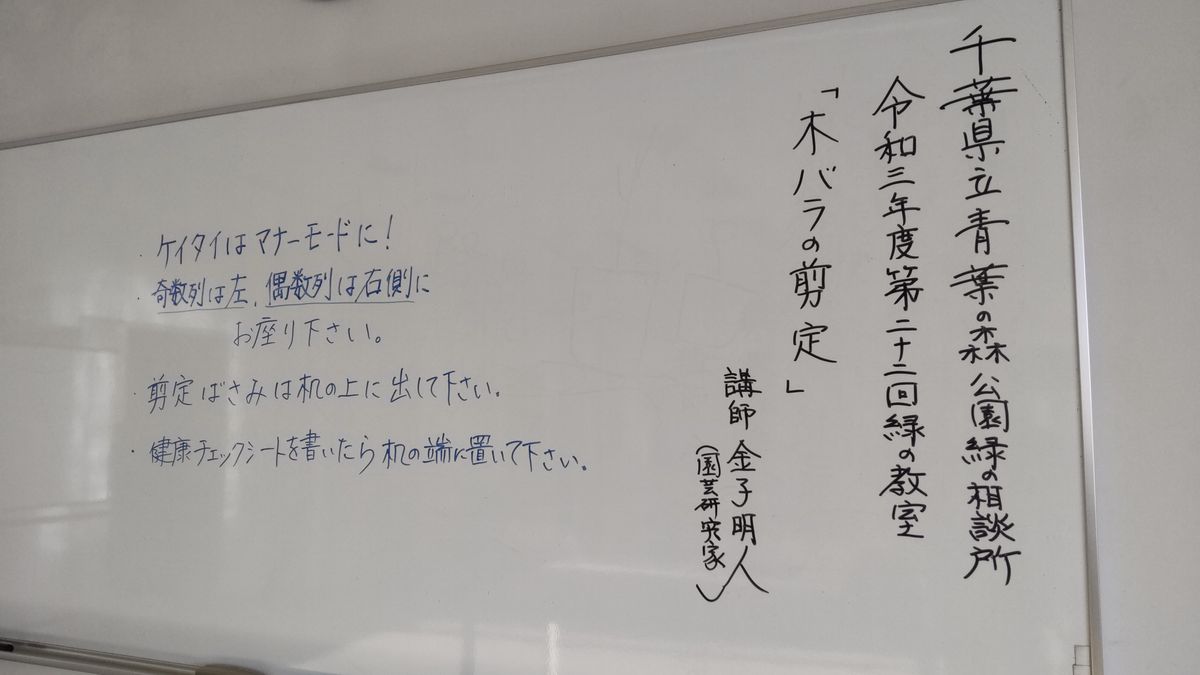 千葉県立青葉の森公園緑の相談所
令和三年度第二十二回緑の教室
「木バラの剪定」
講師 金子明人
（園芸研究家）
・ケイタイはマナーモードに！
・奇数列は左、偶数列は右側に
お座り下さい。
・剪定ばさみは机の上に出して下さい。
・健康チェックシートを書いたら机の端に置いて下さい。